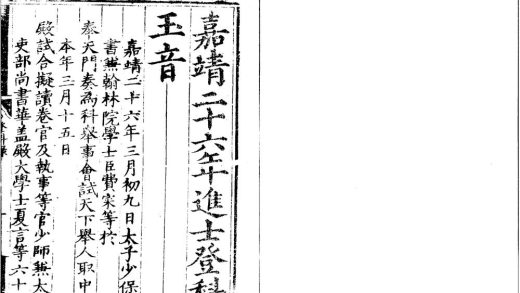 嘉靖二十六年進士登科
玉音
嘉靖二十六年三月初九日太子少保
書兼翰林院學士臣費寀等於
奉天門奏爲科舉事會試天下舉人取中
本年三月十五日
殿試合擬讀卷官及執事等官少師兼太
吏部尚書華盖殿大學士夏言等六十